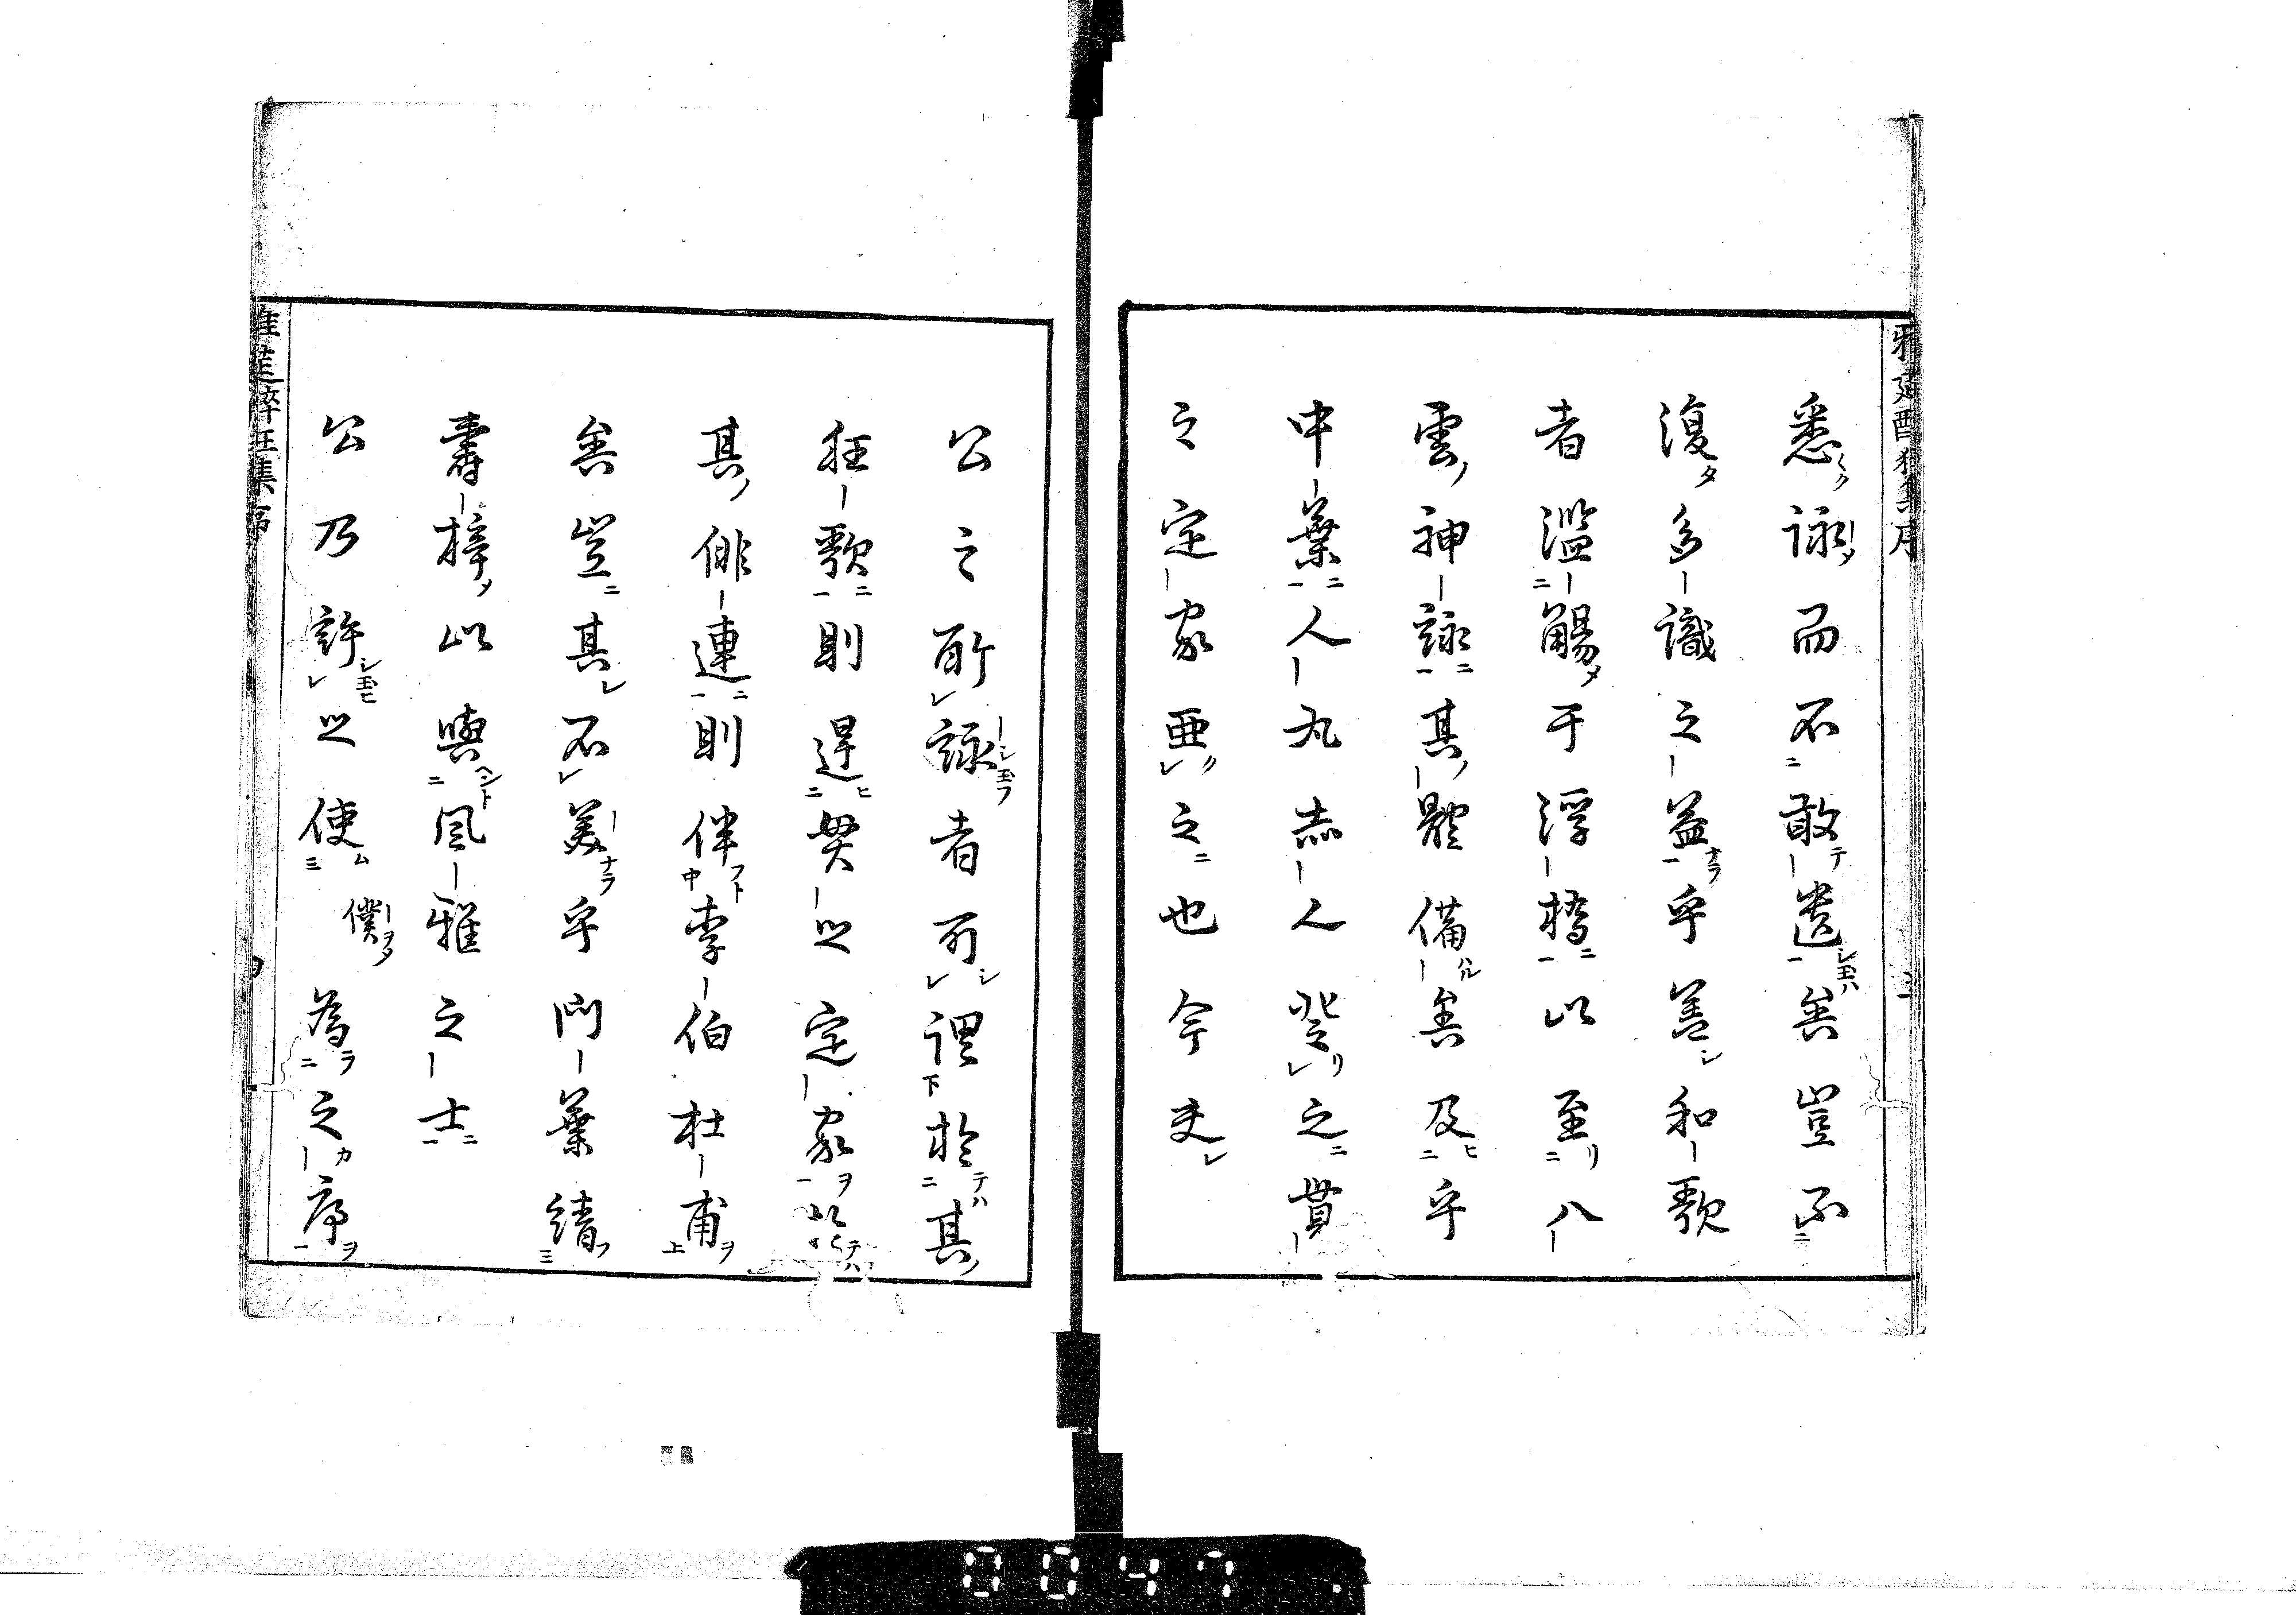 悉詠而不敢遺矣豈不
復多識之益乎善和歌
者濫觴于浮橋以至八
雲神詠其體備矣及乎
中葉人丸赤人登之貫
之定家亜之也今夫
公之所詠者可謂於其
狂歌則逞貫之定家
其俳連則伴李伯杜甫
矣豈其不美乎門葉請
壽梓以與風雅之士
公乃許之使僕為之序
雅筵酔狂集序
0047